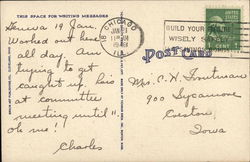 THIS SPACE FOR WRITING MESSAGES
Geneva 19 Jan.
Worked out here
all day. Am
trying to get
caught up. Gas
at committee
meeting until!
oh me!
Charles
CHICAGO
JAN
1941
ILL.
BUILD YOUR
WISELY
POST CARD
Mrs. C. H. Troutman
900 Sycamore
Creston,
Iowa